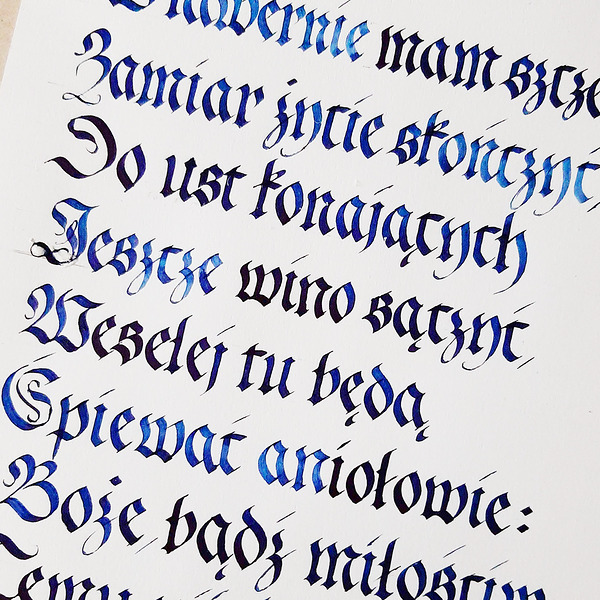 W tawernie mam szcze
Zamiar życie skończyć,
Do ust konających
Jeszcze wino sączyć,
Weselej tu będą
Śpiewać aniołowie:
Boże bądź miłościw
Temu